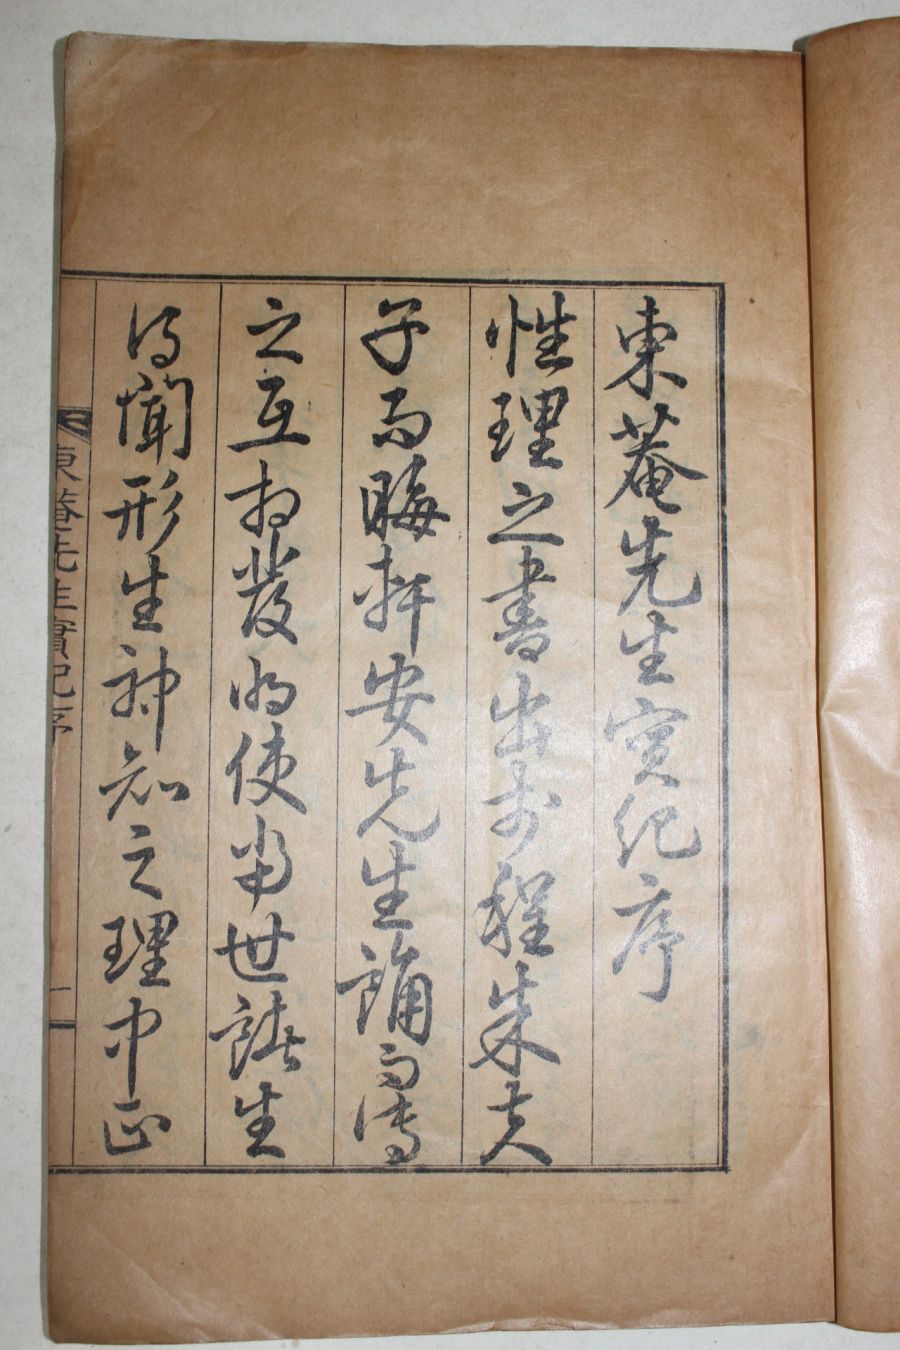 東菴先生實紀序
性理之書出於程朱夫
子而晦軒安先生誦而傳
之互相發明使當世諸生
得聞形生神知之理中正
東菴先生實紀序
一